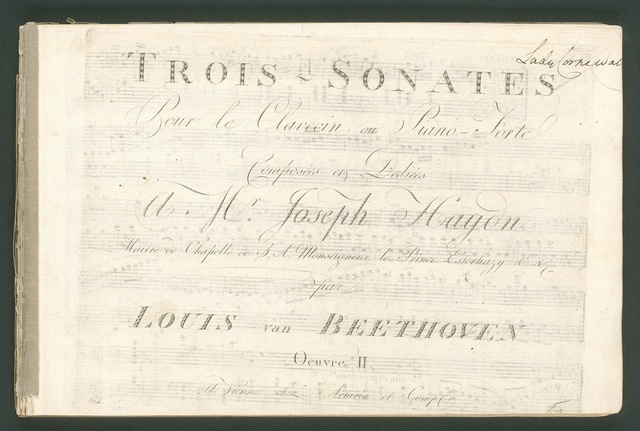 Lady Cornewal
TROIS SONATES
Pour le Clavecin ou Piano-Forte
Composées et Dediées
A Mr. Joseph Haydn
Maitre de Chapelle de S. A. Monseigneur le Prince Esterhazy &c &c
par
LOUIS van BEETHOVEN
Oeuvre II
A Vienne chez Artaria et Comp.